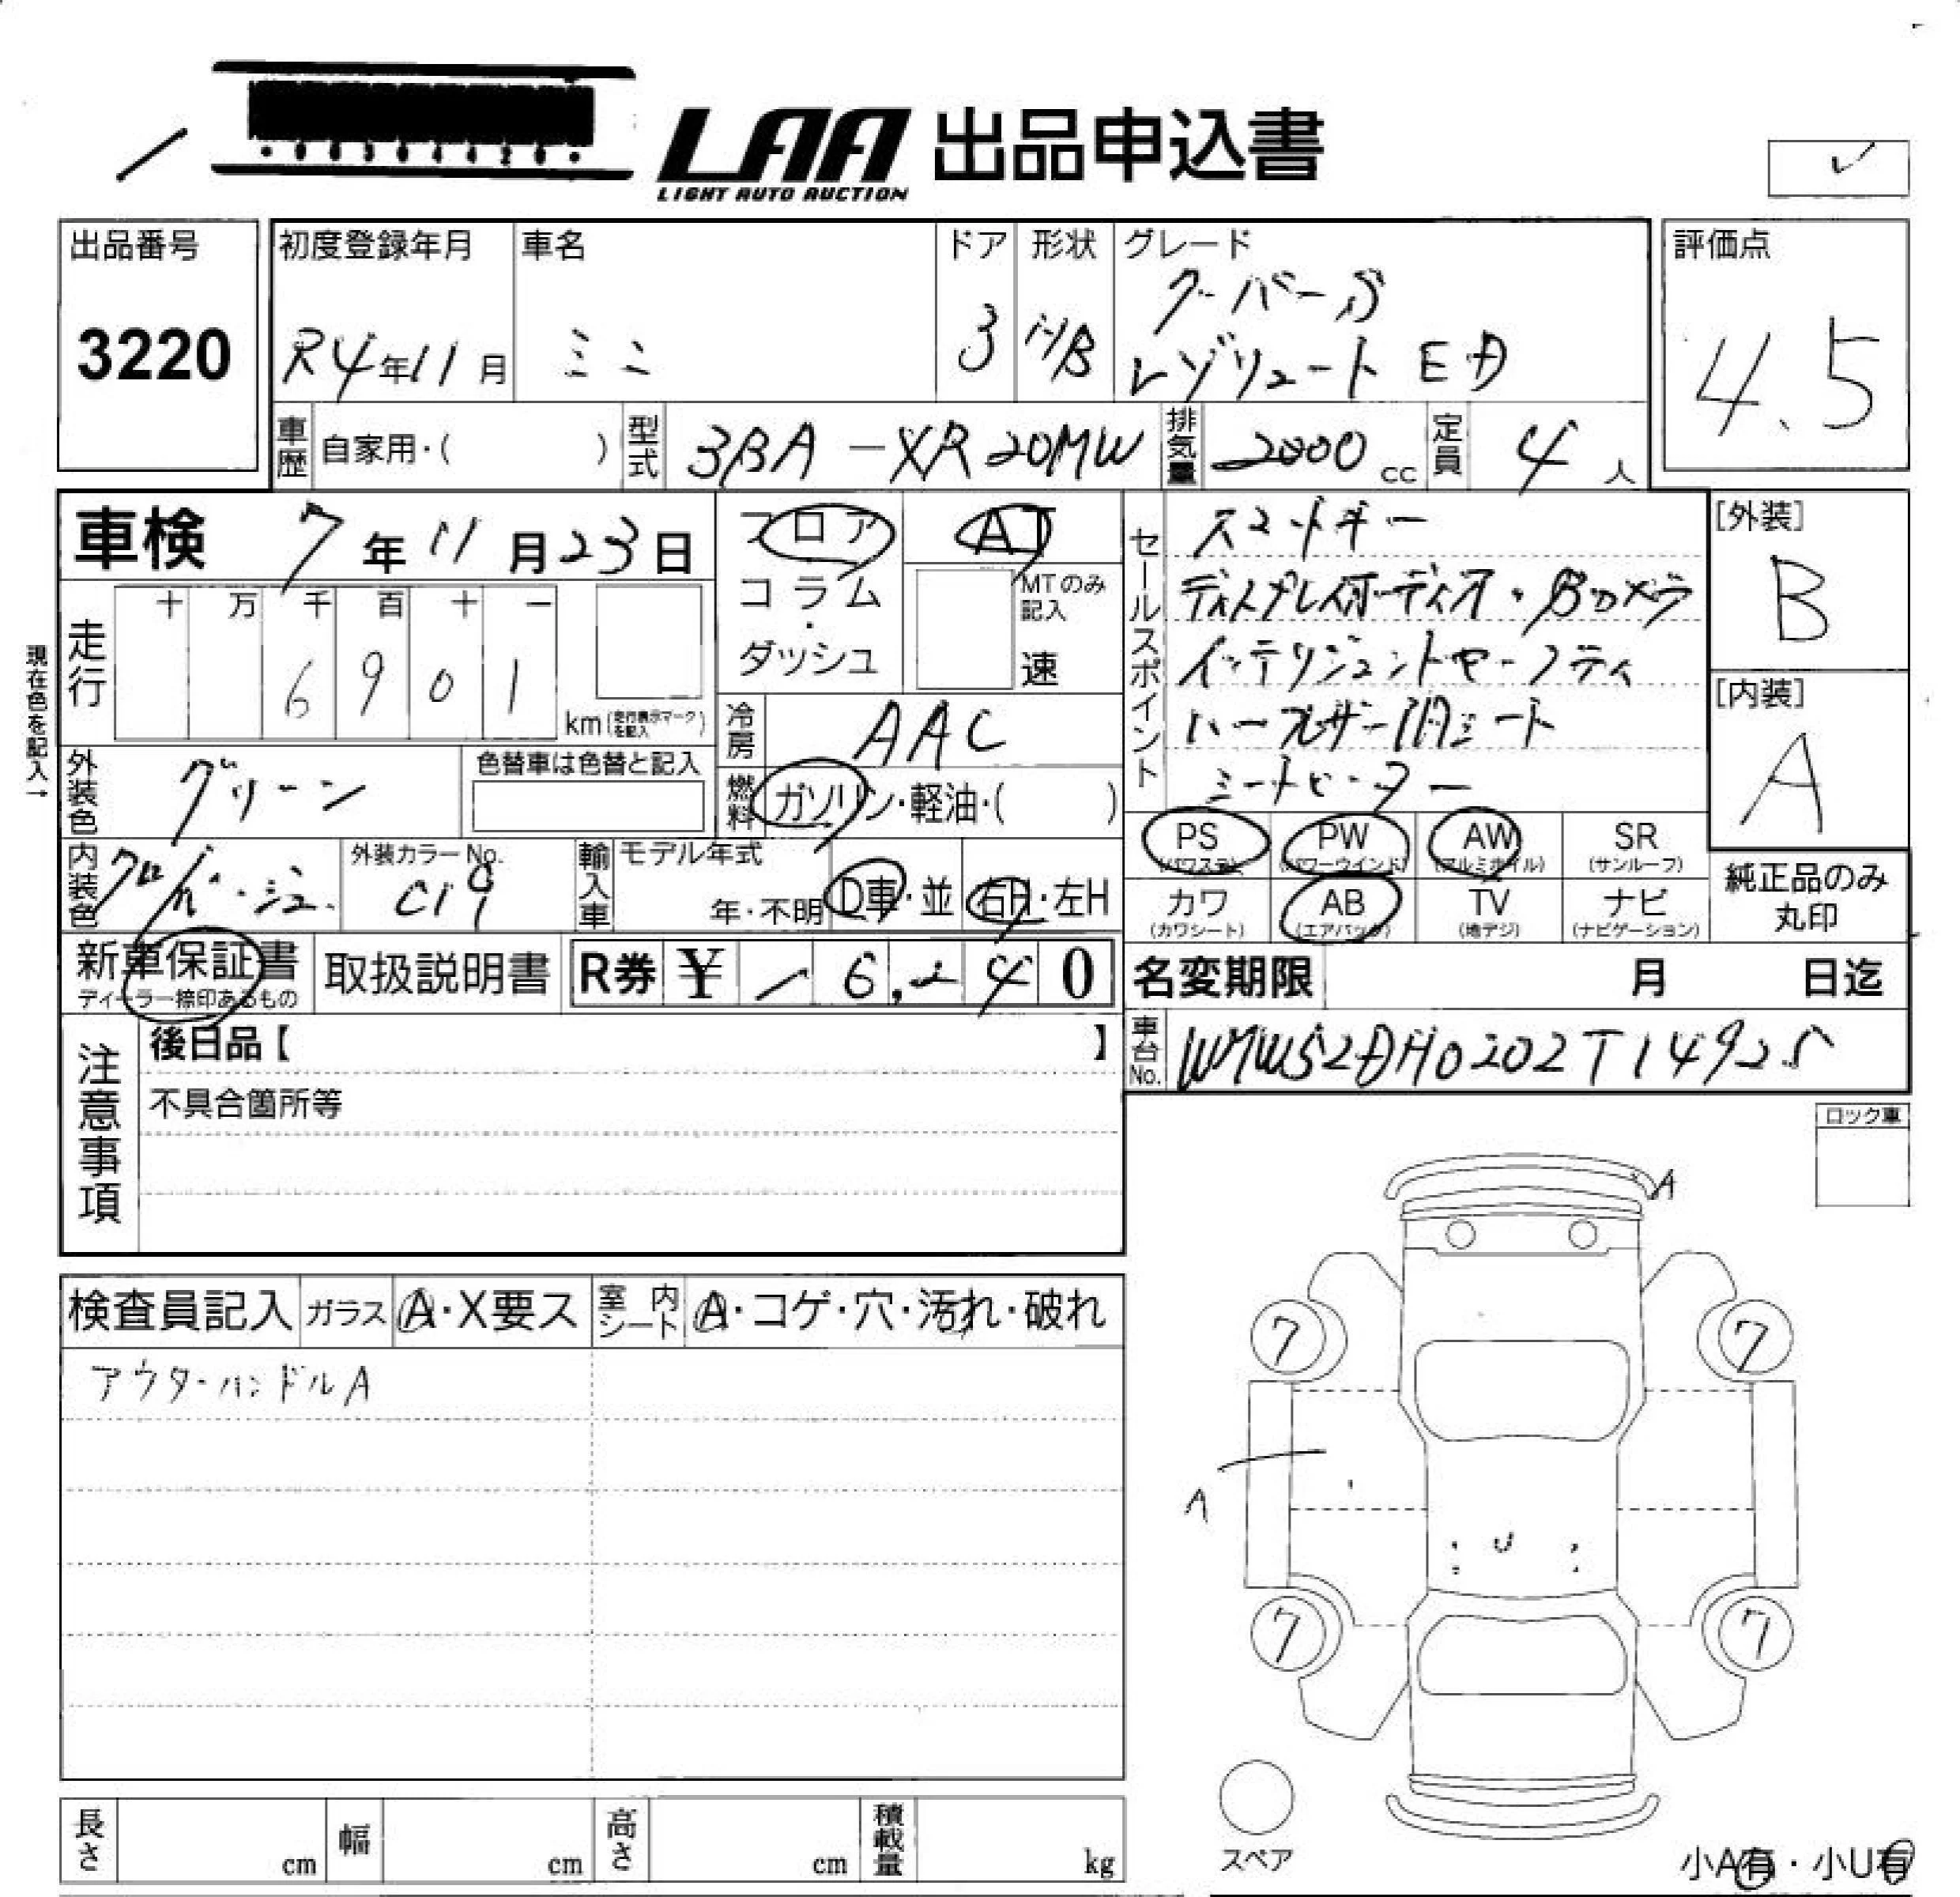 LAA 出品申込書
LIGHT AUTO AUCTION
出品番号
3220
初度登録年月
R4年11月
車名
ミニ
ドア
3
形状
H/B
グレード
クーパーS
レゾリュート ED
評価点
4.5
車歴
自家用・( )
型式
3BA-XR20MW
排気量
2000 cc
定員
4 人
車検 7年11月23日
フロア
コラム・
ダッシュ
AT
MTのみ記入
速
セールスポイント
スマートキー
ディスプレイオーディオ・Bカメラ
インテリジェントセーフティ
ハーフレザー シート
シートヒーター
[外装]
B
[内装]
A
現在色を記入→
走行
十 万 千 百 十 一
6 9 0 1
km (走行表示マークを記入)
冷房
AAC
外装色
グリーン
色替車は色替と記入
燃料
ガソリン・軽油・( )
内装色
クロ/ベージュ
外装カラーNo.
C19
輸入車
モデル年式
年・不明
D車・並
右H・左H
PS (パワステ)
PW (パワーウインド)
AW (アルミホイル)
SR (サンルーフ)
カワ (カワシート)
AB (エアバック)
TV (地デジ)
ナビ (ナビゲーション)
純正品のみ
丸印
新車保証書
ディーラー捺印あるもの
取扱説明書
R券 ¥ 1 6,240
名変期限 月 日迄
車台No.
WMW52DH0202T14925
注意事項
後日品【 】
不具合箇所等
ロック車
検査員記入
ガラス
A・X要ス
室内シート
A・コゲ・穴・汚れ・破れ
アウターハンドルA
A
7
7
A
U
7
7
スペア
長さ cm
幅 cm
高さ cm
積載量 kg
小A有・小U有